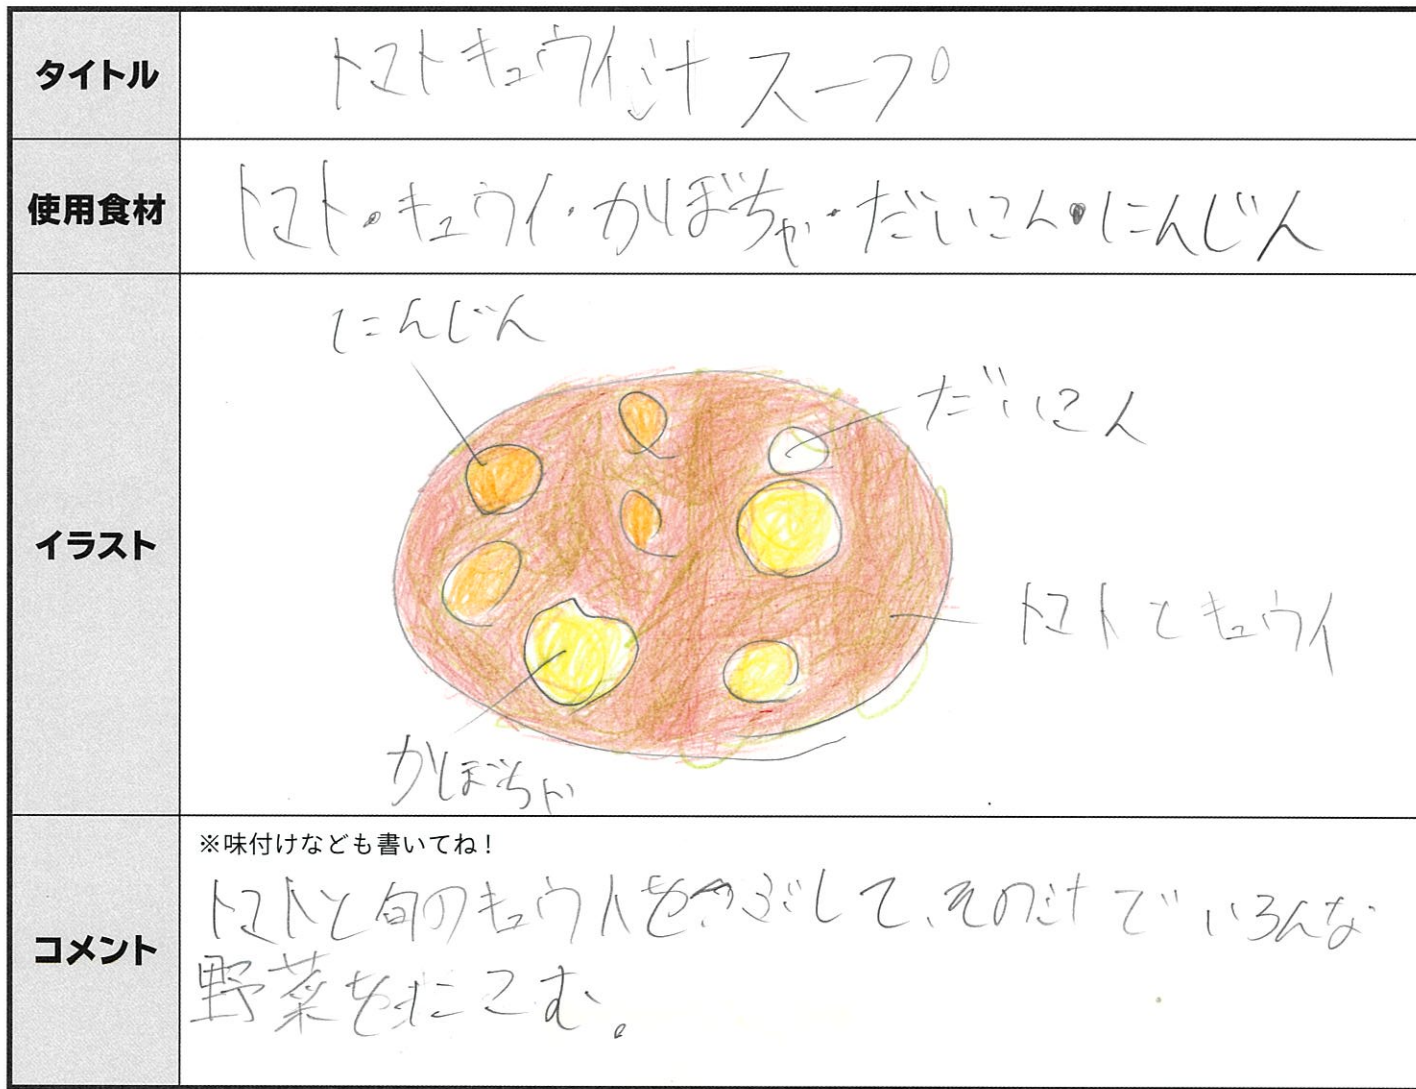 タイトル
トマトキュウイ汁スープ
使用食材
トマト・キュウイ・かぼちゃ・だいこん・にんじん
イラスト
にんじん
だいこん
トマトとキュウイ
かぼちゃ
コメント
※味付けなども書いてね！
トマトと旬のキュウイをつぶして、その汁でいろんな
野菜をにこむ。